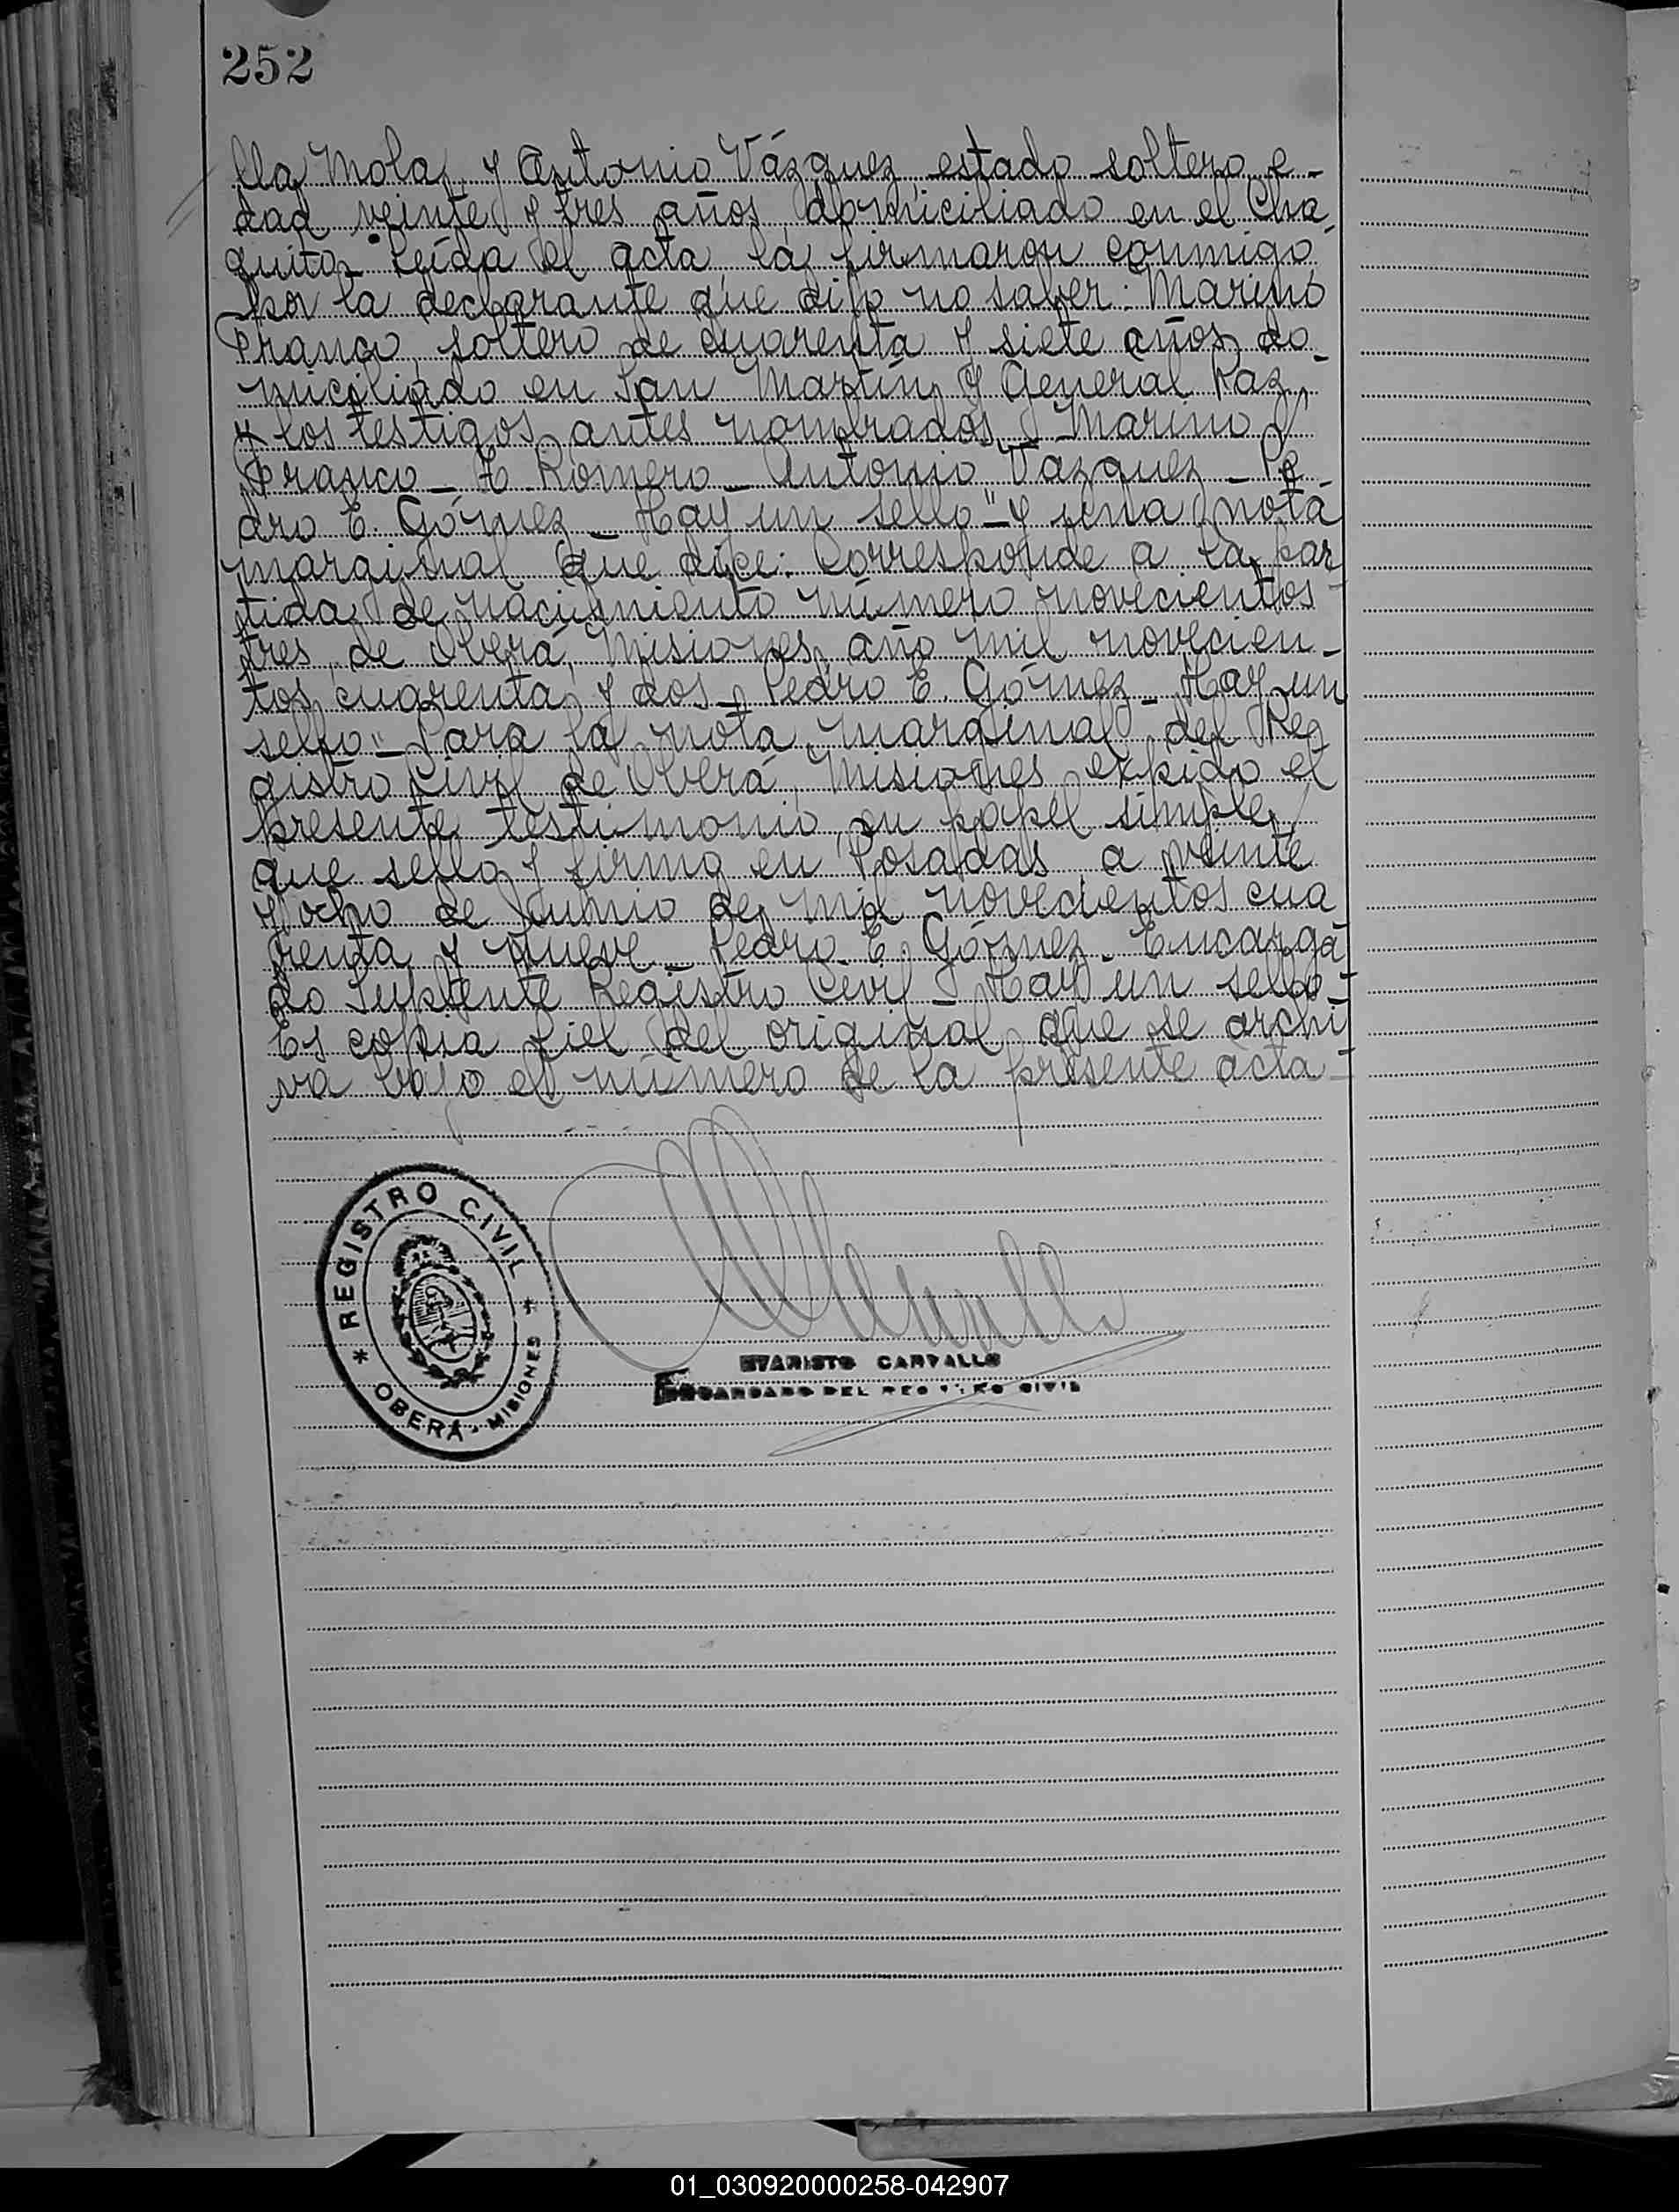 252
lla Mola, y Antonio Vázquez, estado soltero, e-
dad veinte y tres años, domiciliado en el Cha-
quito. Leída el acta, la firmaron conmigo,
por la declarante que dijo no saber: Marino
Franco, soltero de cuarenta y siete años, do-
miciliado en San Martín y General Paz,
y los testigos antes nombrados. Marino
Franco - E. Romero - Antonio Vazquez - Pe-
dro E. Gómez - Hay un sello" - y una nota
marginal que dice: Corresponde a la par-
tida de nacimiento número novecientos
tres, de Oberá, Misiones, año mil novecien-
tos cuarenta y dos - Pedro E. Gómez - Hay un
sello" - Para la nota marginal del Re-
gistro Civil de Oberá, Misiones, expido el
presente testimonio en papel simple,
que sello y firmo en Posadas, a veinte
y ocho de Junio de mil novecientos cua
renta y nueve - Pedro E. Gómez - Encarga-
do Suplente Registro Civil - Hay un sello -
Es copia fiel del original que se archi-
va bajo el número de la presente acta -
REGISTRO CIVIL
* OBERÁ - MISIONES *
EVARISTO CARVALLO
ENCARGADO DEL REGISTRO CIVIL
01_030920000258-042907